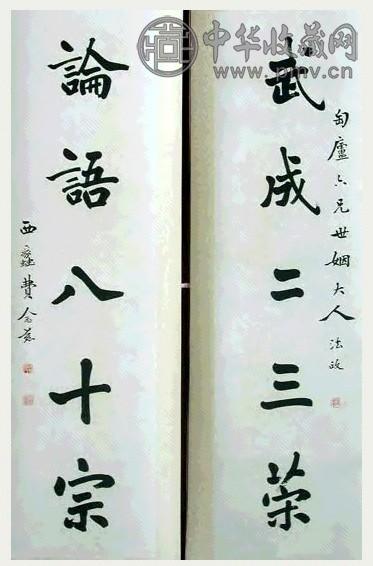 中华收藏网
www.pmv.cn
匋廬六兄世姻大人法政
武成二三荣
論語八十宗
西蠡費念慈